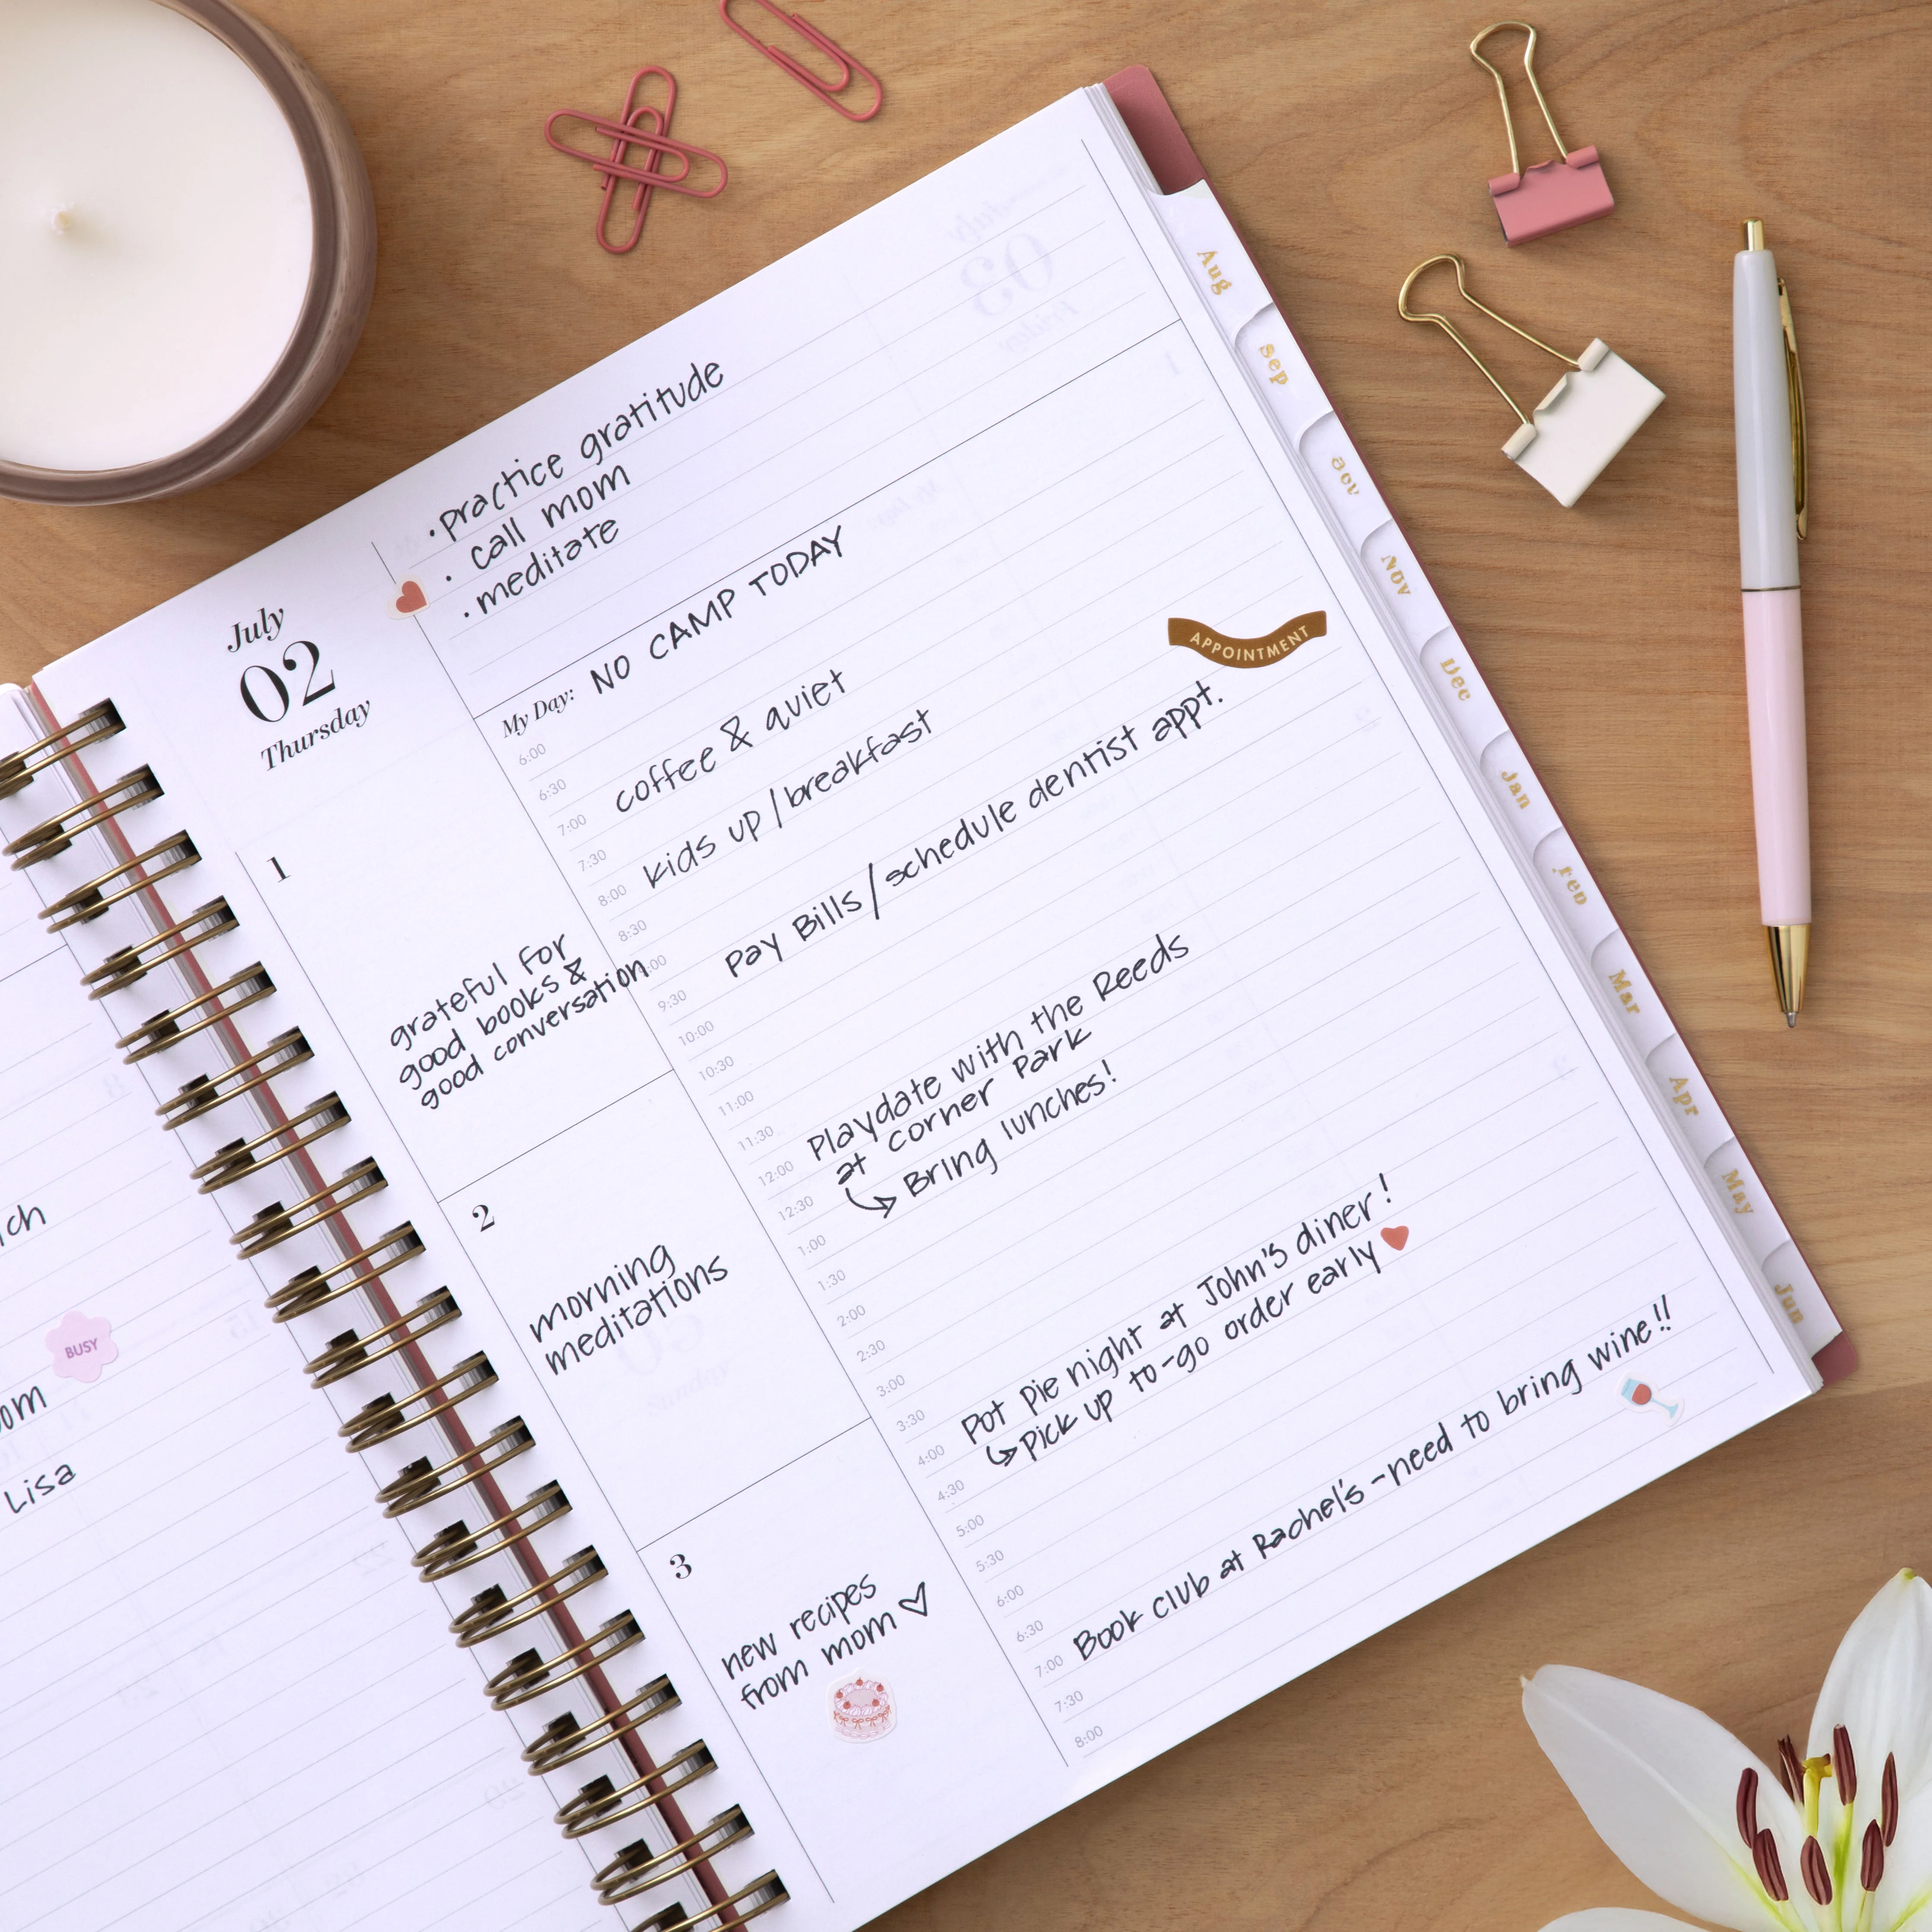 ich
BUSY
om
Lisa
July
02
Thursday
1
grateful for
good books &
good conversation
2
morning
meditations
3
new recipes
from mom
• practice gratitude
• call mom
• meditate
My Day: NO CAMP TODAY
6:00
6:30
7:00 coffee & quiet
7:30
8:00 Kids up / breakfast
8:30
:00
9:30 Pay Bills / schedule dentist appt.
APPOINTMENT
10:00
10:30
11:00
11:30
12:00 Playdate with the Reeds
12:30 at corner Park
1:00 ↳ Bring lunches!
1:30
2:00
2:30
3:00
3:30
4:00 Pot Pie night at John's diner!
4:30 ↳ Pick up to-go order early
5:00
5:30
6:00
6:30
7:00 Book club at Rachel's - need to bring wine!!
7:30
8:00
Aug
Sep
Nov
Dec
Jan
Mar
Apr
May
Jun